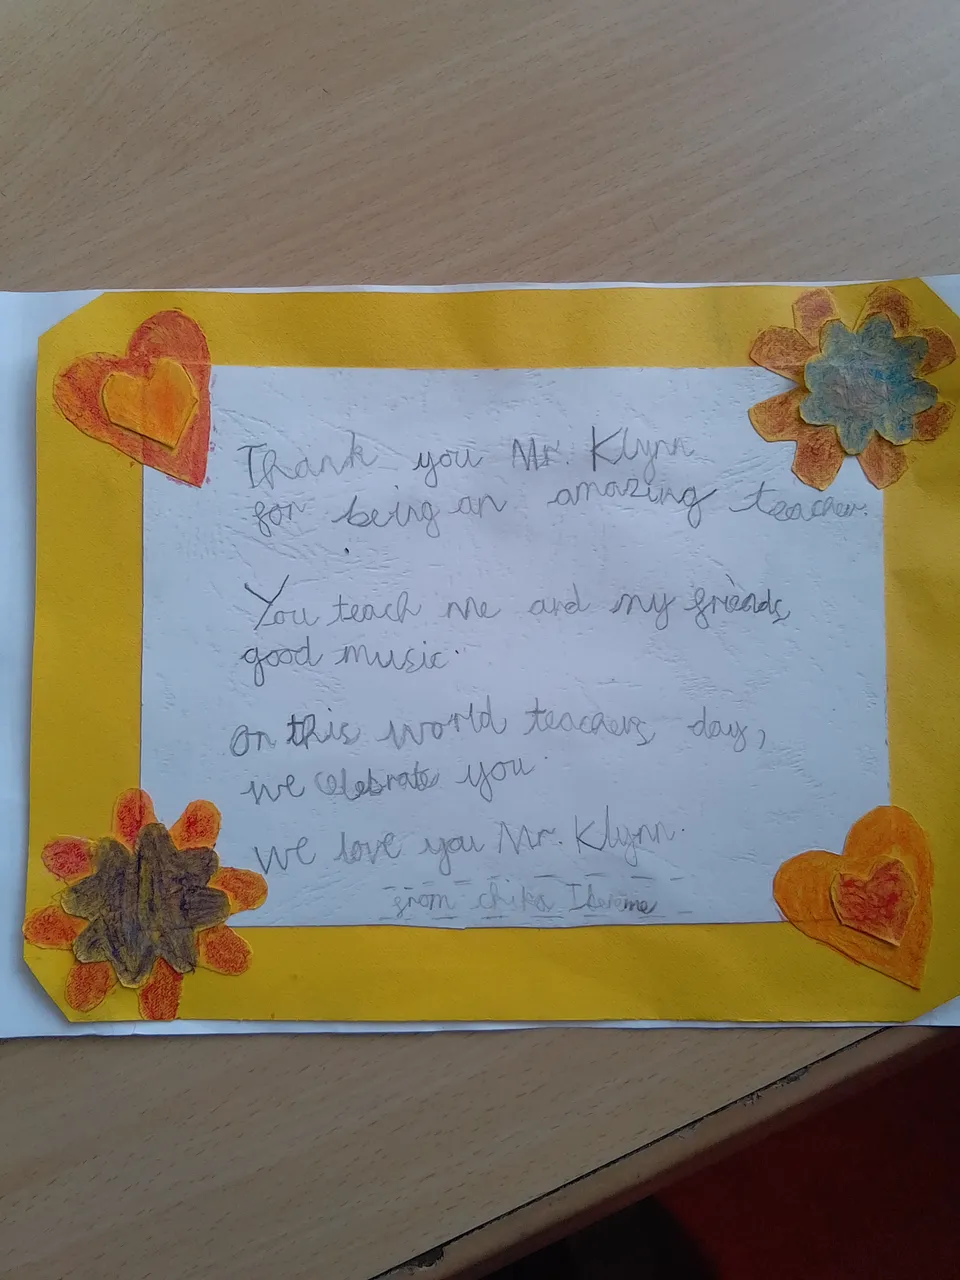 Thank you Mr. Klynn
for being an amazing teacher.
You teach me and my friends
good music.
on this world teachers day,
we celebrate you.
we love you Mr. Klynn.
from chika